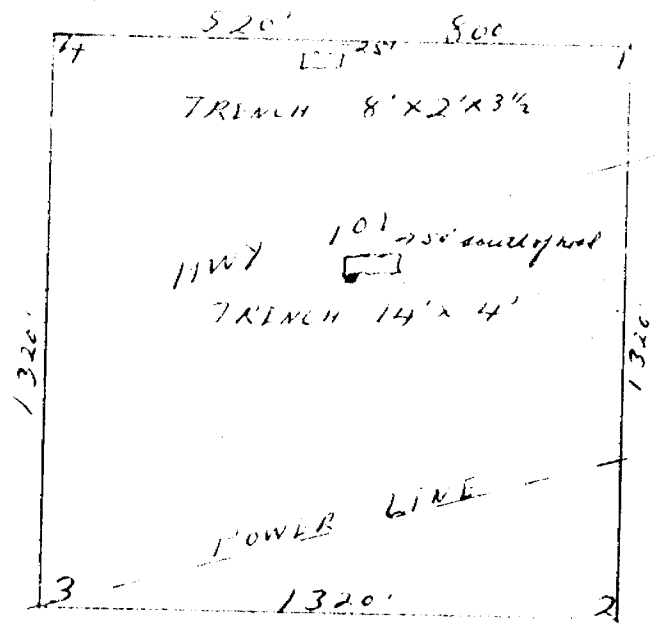 520' 800
4 25' 1
TRENCH 8' X 2' X 3½
HWY 101 → 50' south of road
TRENCH 14' X 4'
1320'
1320'
POWER LINE
3 1320' 2